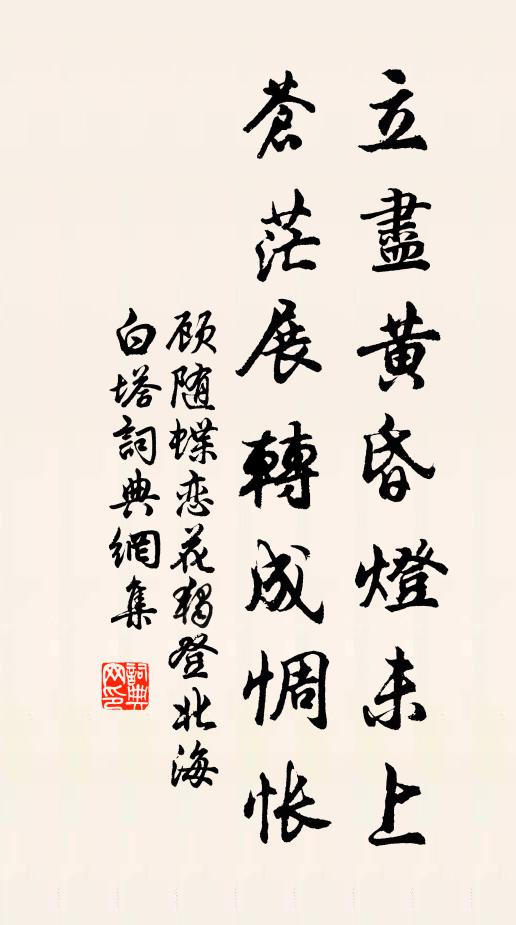 立盡黄昏燈未上
蒼茫展轉成惆怅
顾随蝶恋花獨登北海
白塔詞典網集
詞典
网印